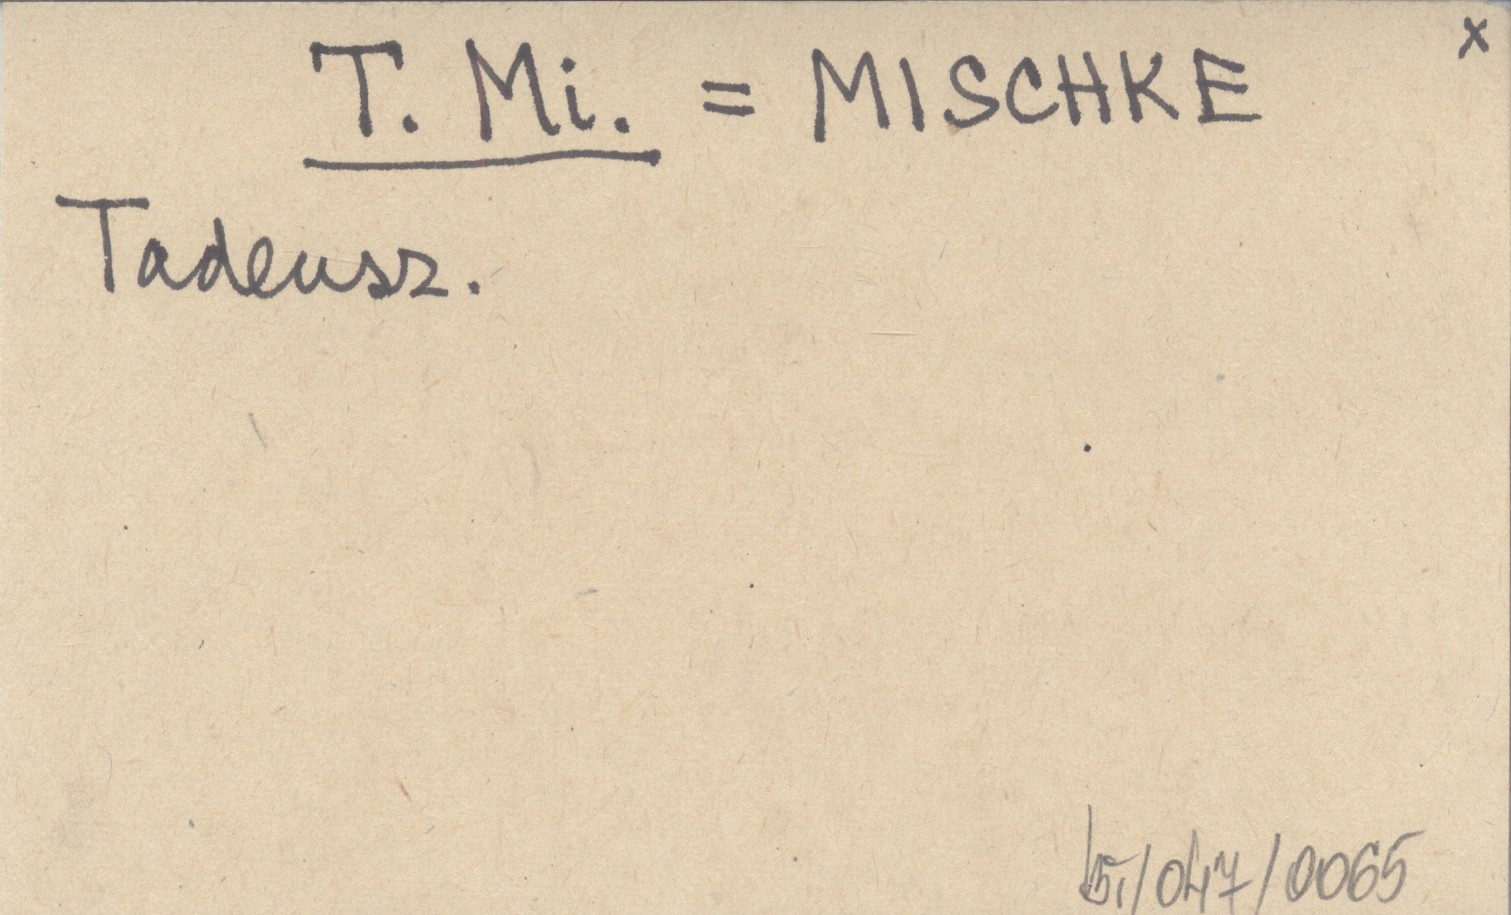 x
T. Mi. = MISCHKE
Tadeusz.
/047/0065